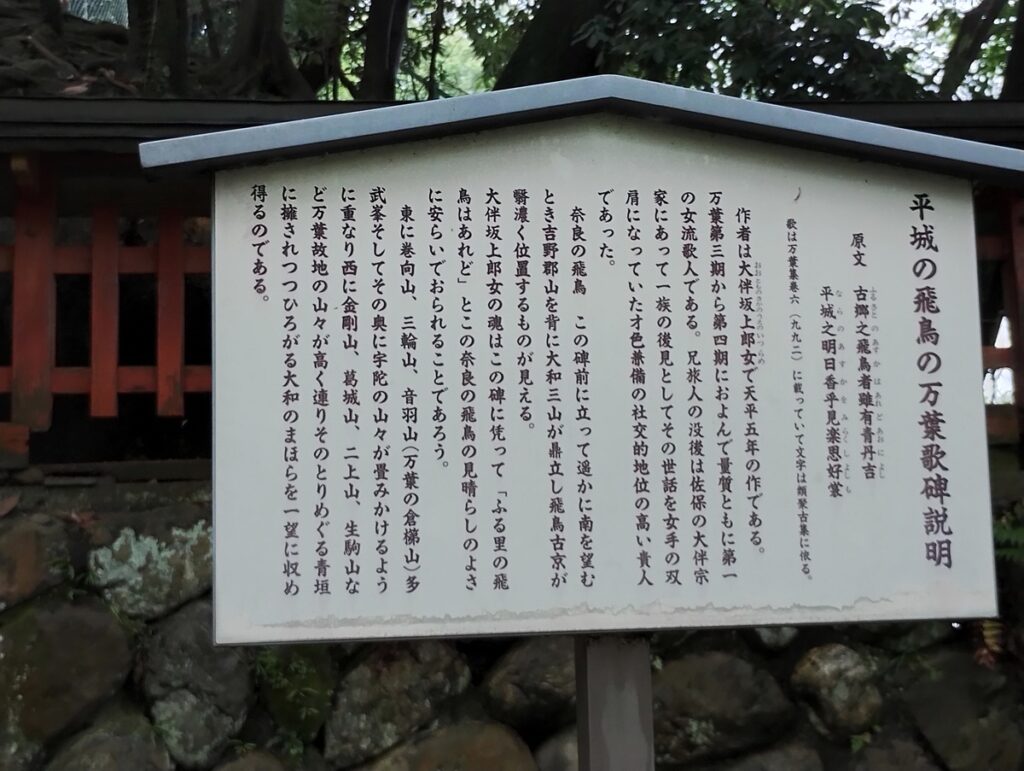 平城の飛鳥の万葉歌碑説明
原文　古郷之飛鳥者雖有青丹吉
ふるさとのあすかはあれどあおによし
平城之明日香乎見楽思好裳
ならのあすかをみらくしよしも
歌は万葉集巻六（九九二）に載っていて文字は類聚古集に依る。
作者は大伴坂上郎女で天平五年の作である。
おおとものさかのうえのいつらめ
万葉第三期から第四期におよんで量質ともに第一
の女流歌人である。兄旅人の没後は佐保の大伴宗
家にあって一族の後見としてその世話を女手の双
肩になっていた才色兼備の社交的地位の高い貴人
であった。
奈良の飛鳥　この碑前に立って遥かに南を望む
とき吉野郡山を背に大和三山が鼎立し飛鳥古京が
翳濃く位置するものが見える。
大伴坂上郎女の魂はこの碑に凭って「ふる里の飛
鳥はあれど」とこの奈良の飛鳥の見晴らしのよさ
に安らいでおられることであろう。
東に巻向山、三輪山、音羽山（万葉の倉梯山）多
武峯そしてその奥に宇陀の山々が畳みかけるよう
に重なり西に金剛山、葛城山、二上山、生駒山な
ど万葉故地の山々が高く連りそのとりめぐる青垣
に擁されつつひろがる大和のまほらを一望に収め
得るのである。